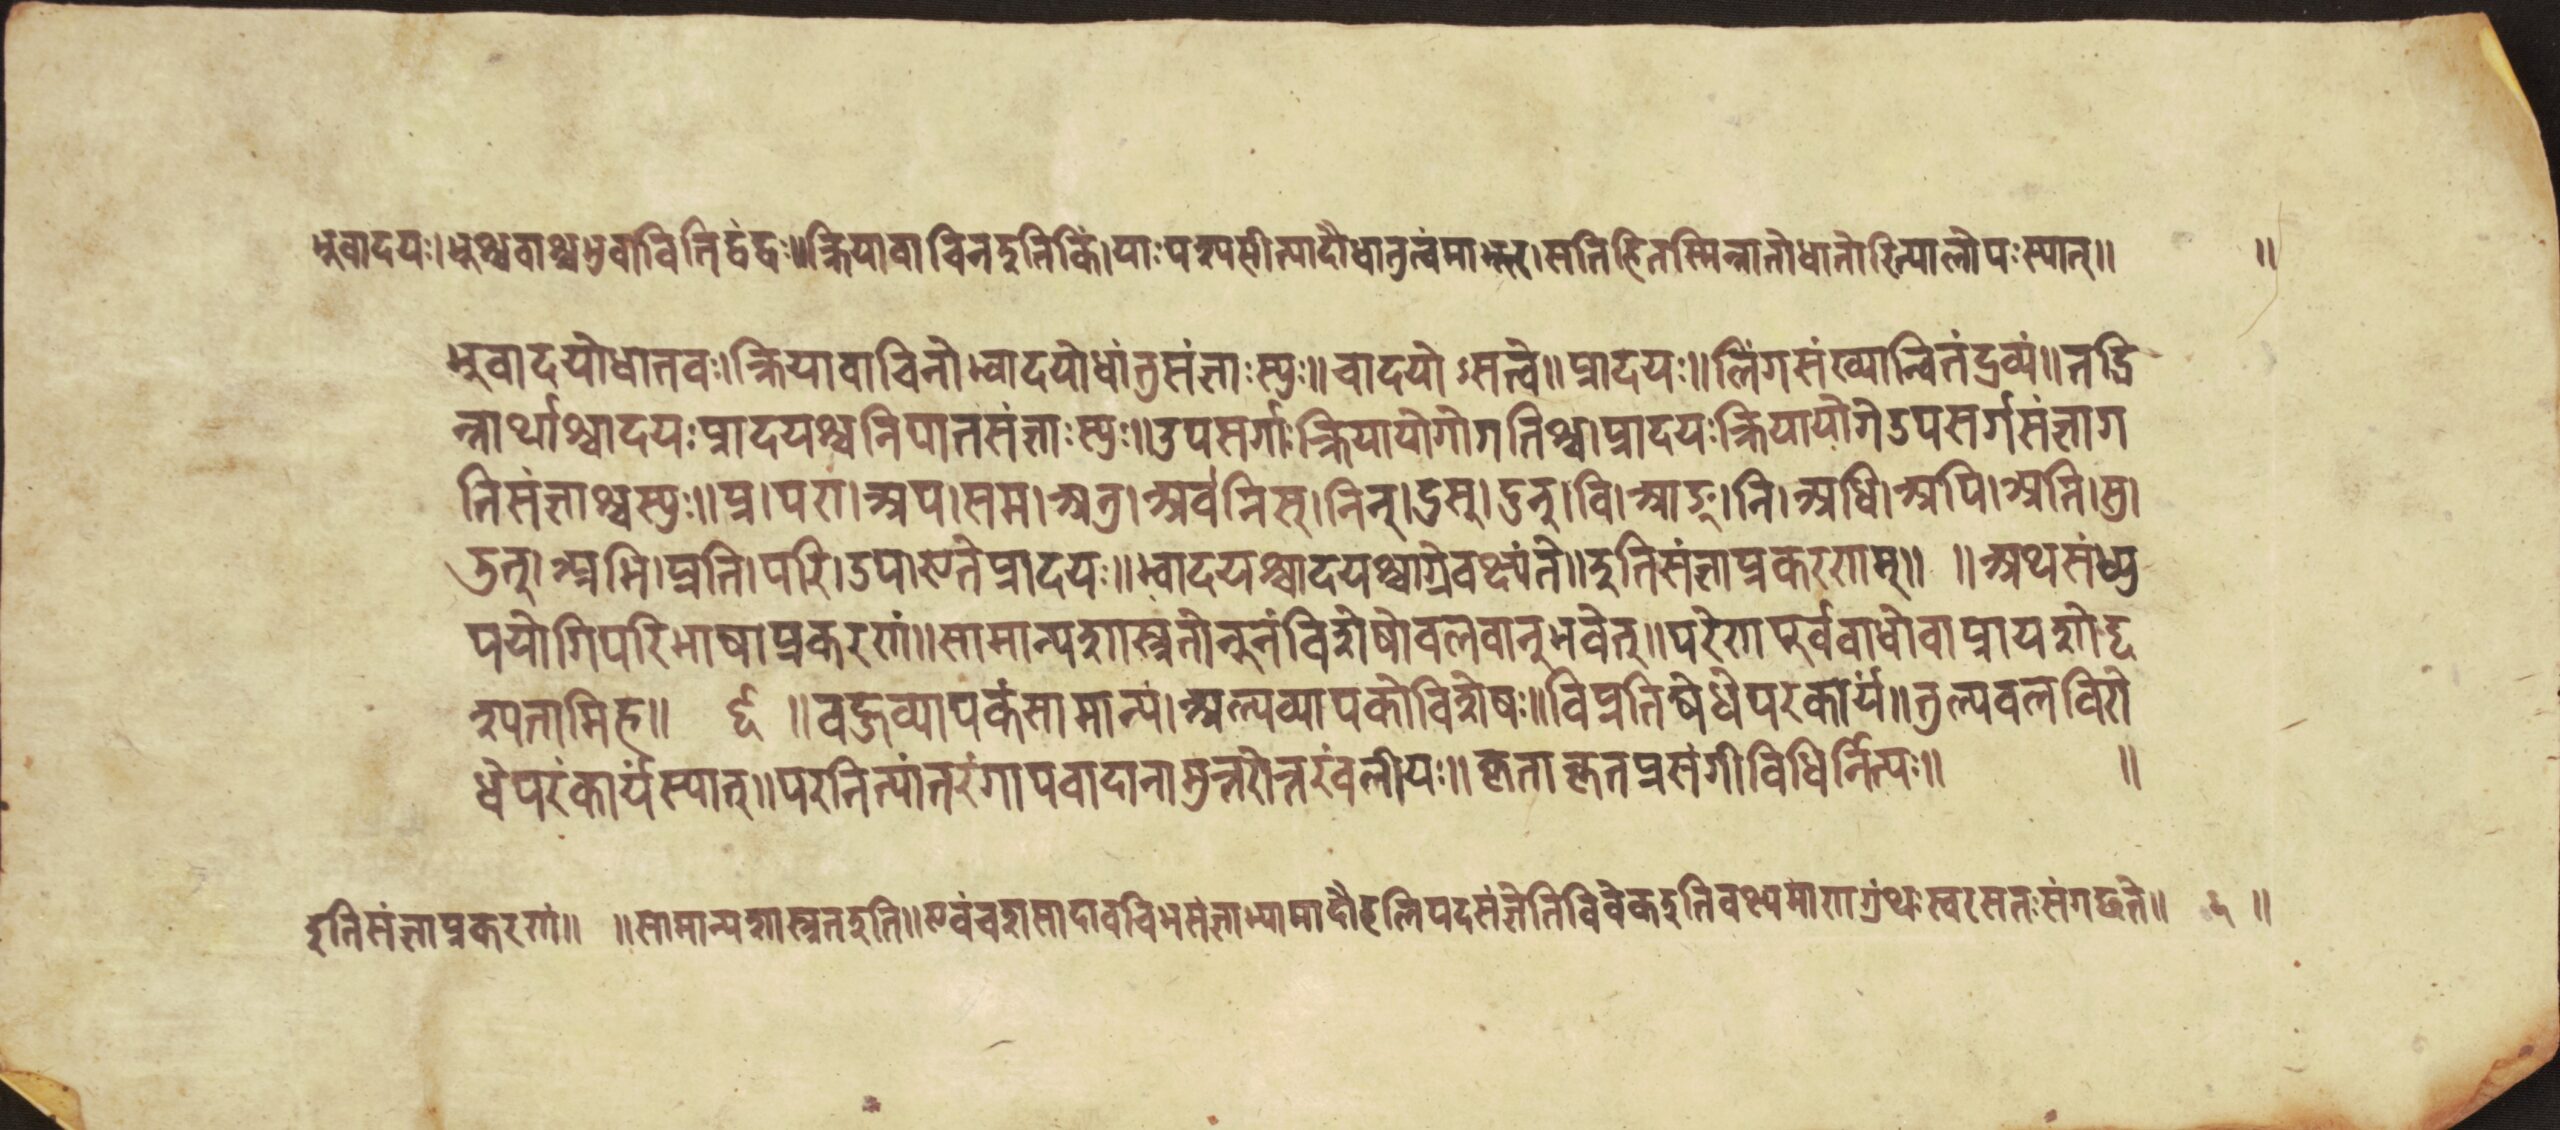 भुवादयः। भूश्च वाश्च भुवाविति द्वंद्वः॥ क्रियावाचिन इति किं। याः पश्यसीत्यादौ धातुत्वं मा भूत्। सति हि तस्मिन्नातो धातोरित्यालोपः स्यात्॥ ॥
भुवादयो धातवः। क्रियावाचिनो भ्वादयो धातुसंज्ञाः स्युः॥ चादयोऽसत्वे॥ प्रादयः॥ लिंगसंख्यान्वितं द्रव्यं॥ तद्भि
न्नार्थाश्चादयः प्रादयश्च निपातसंज्ञाः स्युः॥ उपसर्गाः क्रियायोगे गतिश्च। प्रादयः क्रियायोगे उपसर्गसंज्ञा ग
तिसंज्ञाश्च स्युः॥ प्र। परा। अप। सम। अनु। अव। निस्। निर्। दुस्। दुर्। वि। आङ्। नि। अधि। अपि। अति। सु।
उत्। अभि। प्रति। परि। उप। एते प्रादयः॥ भ्वादयश्चादयश्चाग्रे वक्ष्यंते॥ इति संज्ञाप्रकरणम्॥ ॥ अथ संध्यु
पयोगिपरिभाषाप्रकरणं॥ सामान्यशास्त्रतो नूनं विशेषो बलवान् भवेत्॥ परेण पूर्वबाधो वा प्रायशो दृ
श्यतामिह॥ ॥ बहुव्यापकं सामान्यं। अल्पव्यापको विशेषः॥ विप्रतिषेधे परं कार्यं॥ तुल्यबलविरो
धे परं कार्यं स्यात्॥ परनित्यांतरंगापवादानामुत्तरोत्तरं बलीयः॥ कृताकृतप्रसंगी विधिर्नित्यः॥ ॥
इति संज्ञाप्रकरणं॥ ॥ सामान्यशास्त्रत इति॥ एवं च शसादावचि भसंज्ञा भ्यामादौ हलि पदसंज्ञेति विवेक इति वक्ष्यमाणग्रंथः स्वरसतः संगच्छते॥ ॥